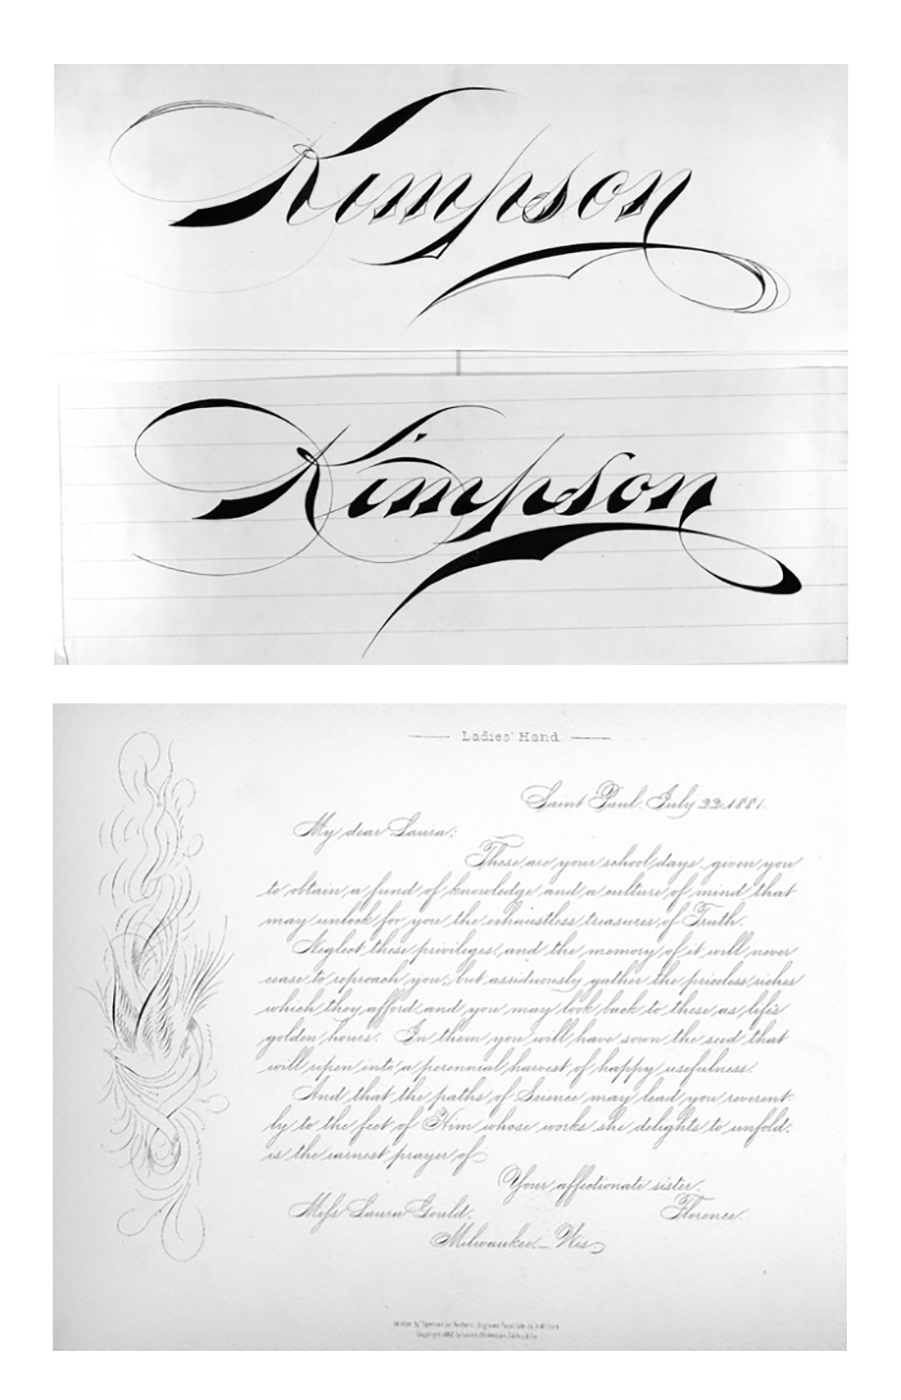 Kimpson
Kimpson
Ladies' Hand.
Saint Paul. July 22. 1881.
My dear Laura:
These are your school days, given you
to obtain a fund of knowledge and a culture of mind that
may unlock for you the exhaustless treasures of Truth.
Neglect these privileges, and the memory of it will never
cease to reproach you; but assiduously gather the priceless riches
which they afford and you may look back to these as life's
golden hours. In them you will have sown the seed that
will ripen into a perennial harvest of happy usefulness.
And that the paths of Science may lead you reverent-
ly to the feet of Him whose works she delights to unfold.
is the earnest prayer of
Your affectionate sister.
Miss Laura Gould. Florence.
Milwaukee. — Wis
Written by
Copyright 1882 by